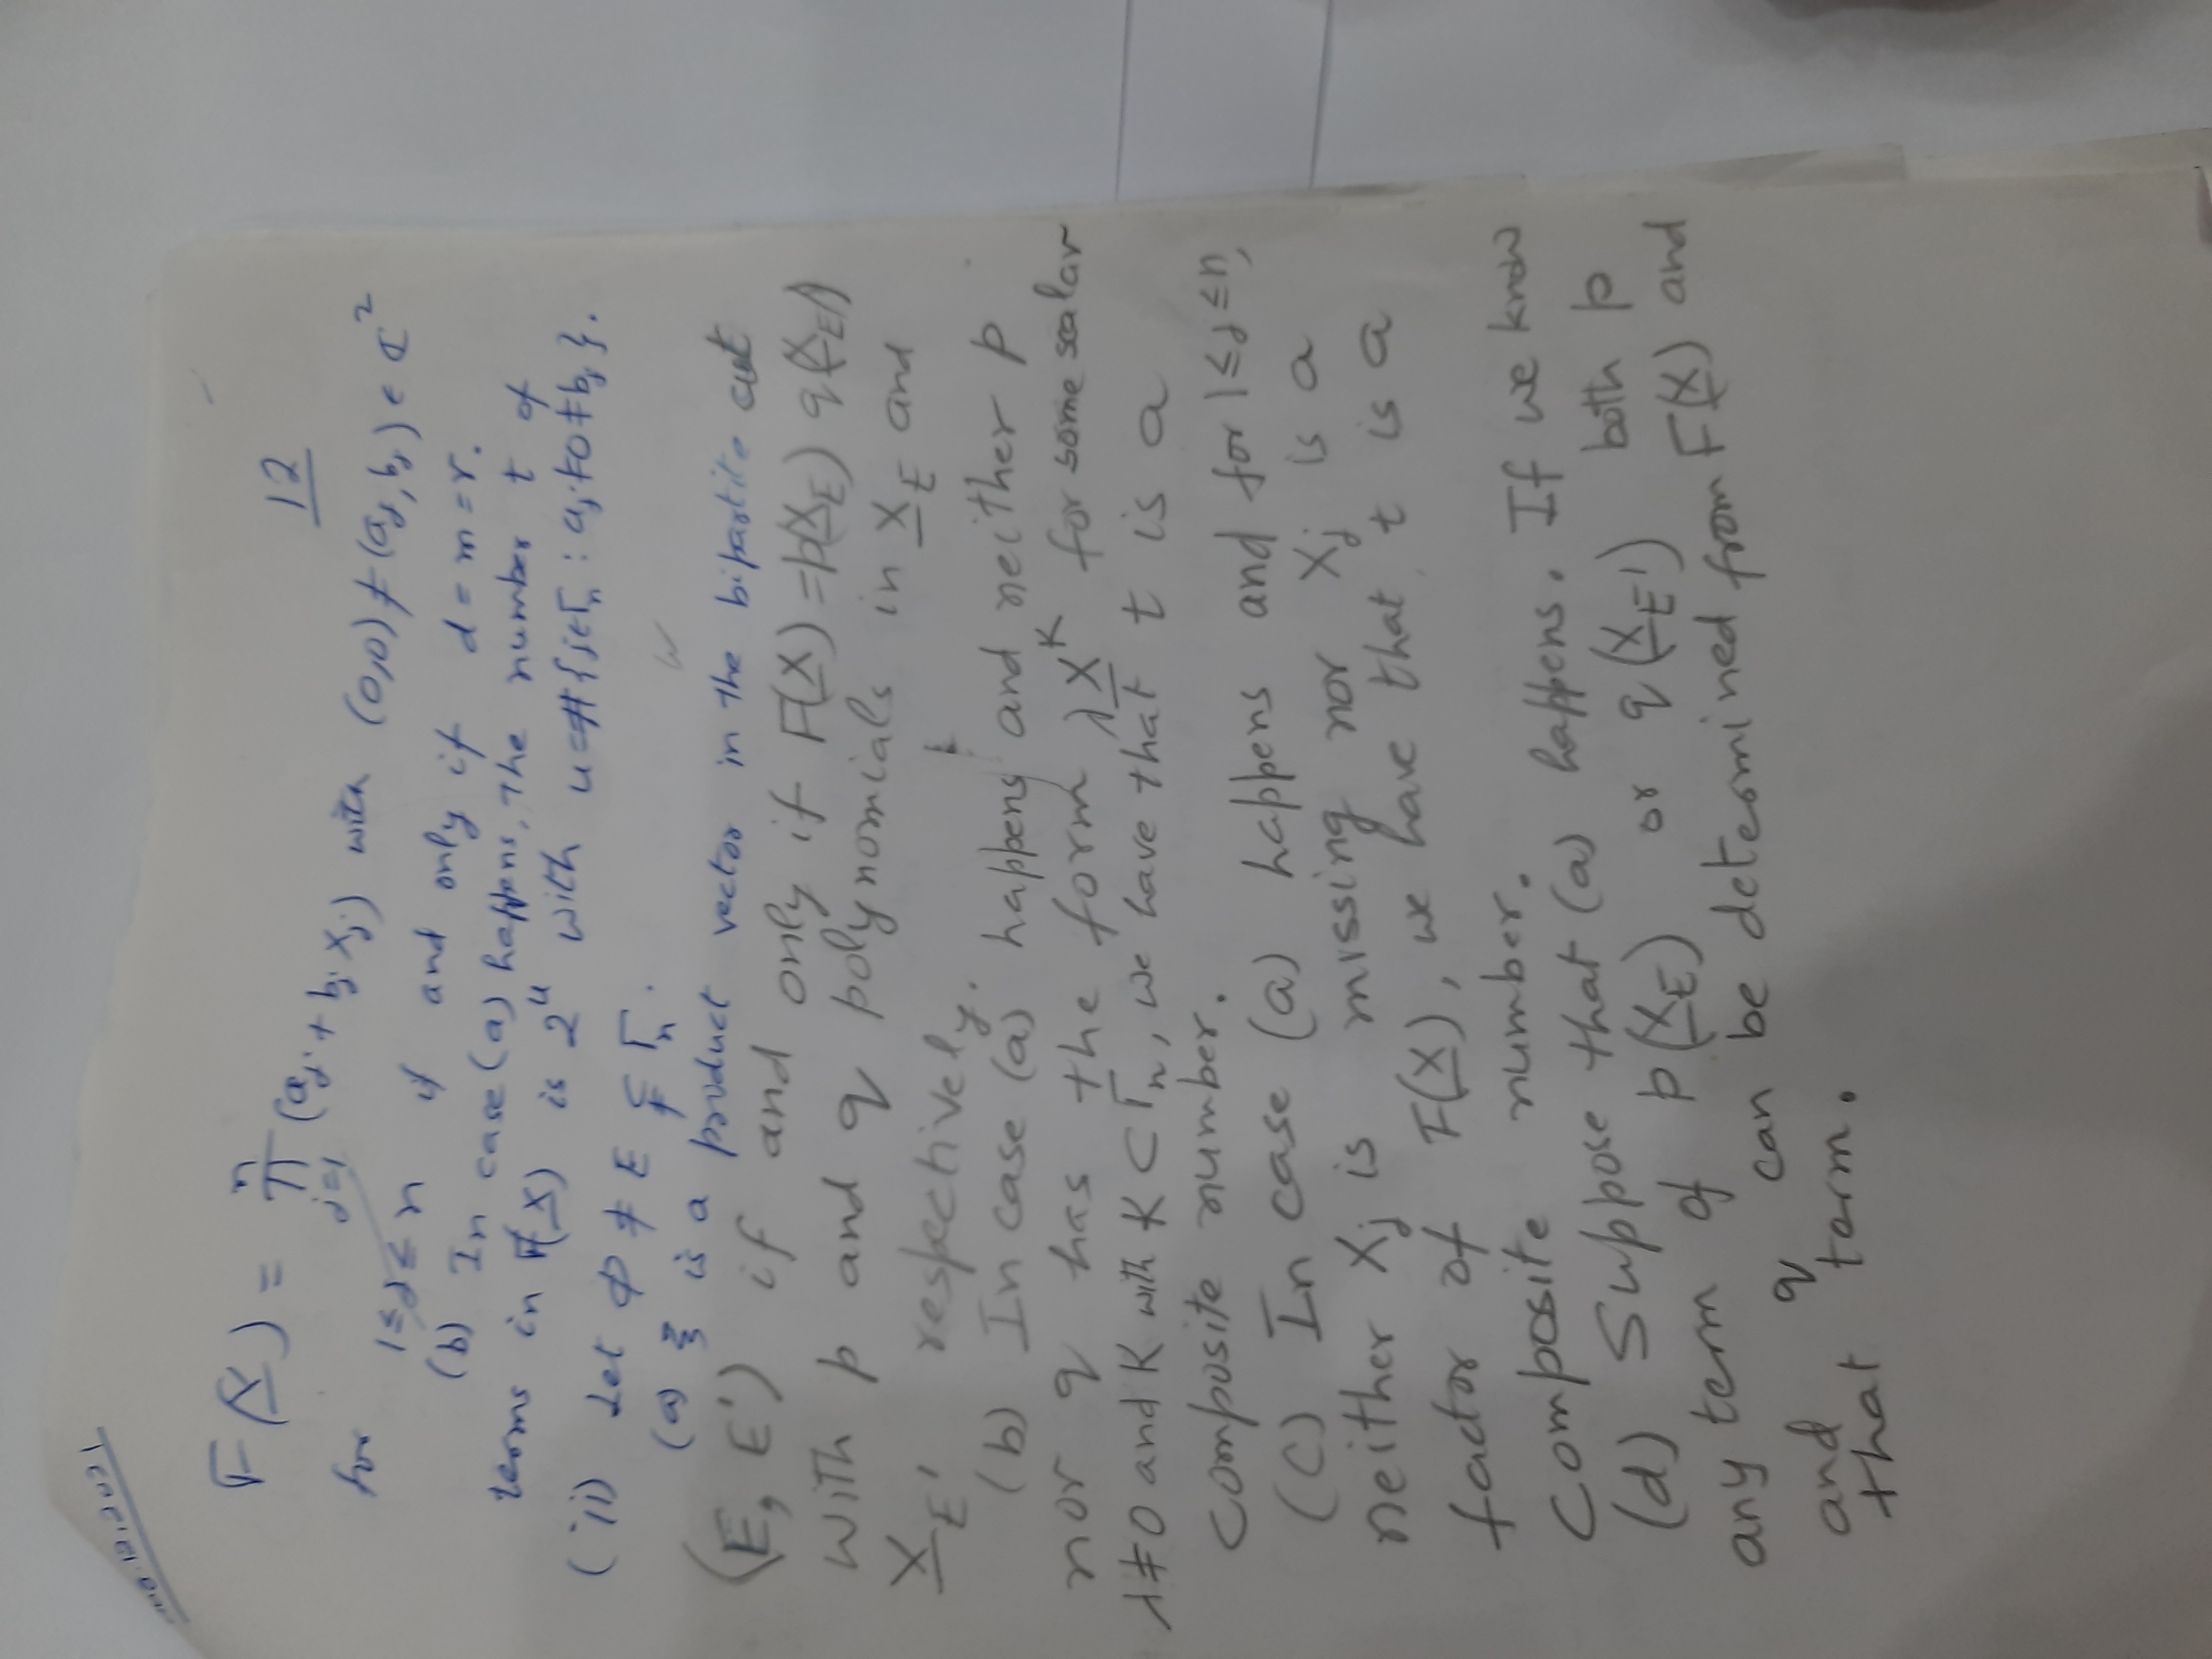 12, 2021
12
F(X) = n∏j=1 (aj + bj Xj) with (0,0) ≠ (aj, bj) ∈ ℂ²
for 1≤j≤n if and only if d = m = r.
(b) In case (a) happens, the number t of
terms in F(X) is 2ᵘ with u = #{j∈Γn : aj ≠ 0 ≠ bj}.
(ii) Let Φ ≠ E ⊊ Γn.
(a) ξ is a product vector in the bipartite cut
(E, E') if and only if F(X) = p(X_E) q(X_E')
with p and q polynomials in X_E and
X_E' respectively.
(b) In case (a) happens and neither p
nor q has the form λX^K for some scalar
λ≠0 and K with K ⊂ Γn, we have that t is a
composite number.
(c) In case (a) happens and for 1≤j≤n,
neither Xj is missing nor Xj is a
factor of F(X), we have that t is a
composite number.
(d) Suppose that (a) happens. If we know
any term of p(X_E) or q(X_E') both p
and q can be determined from F(X) and
that term.